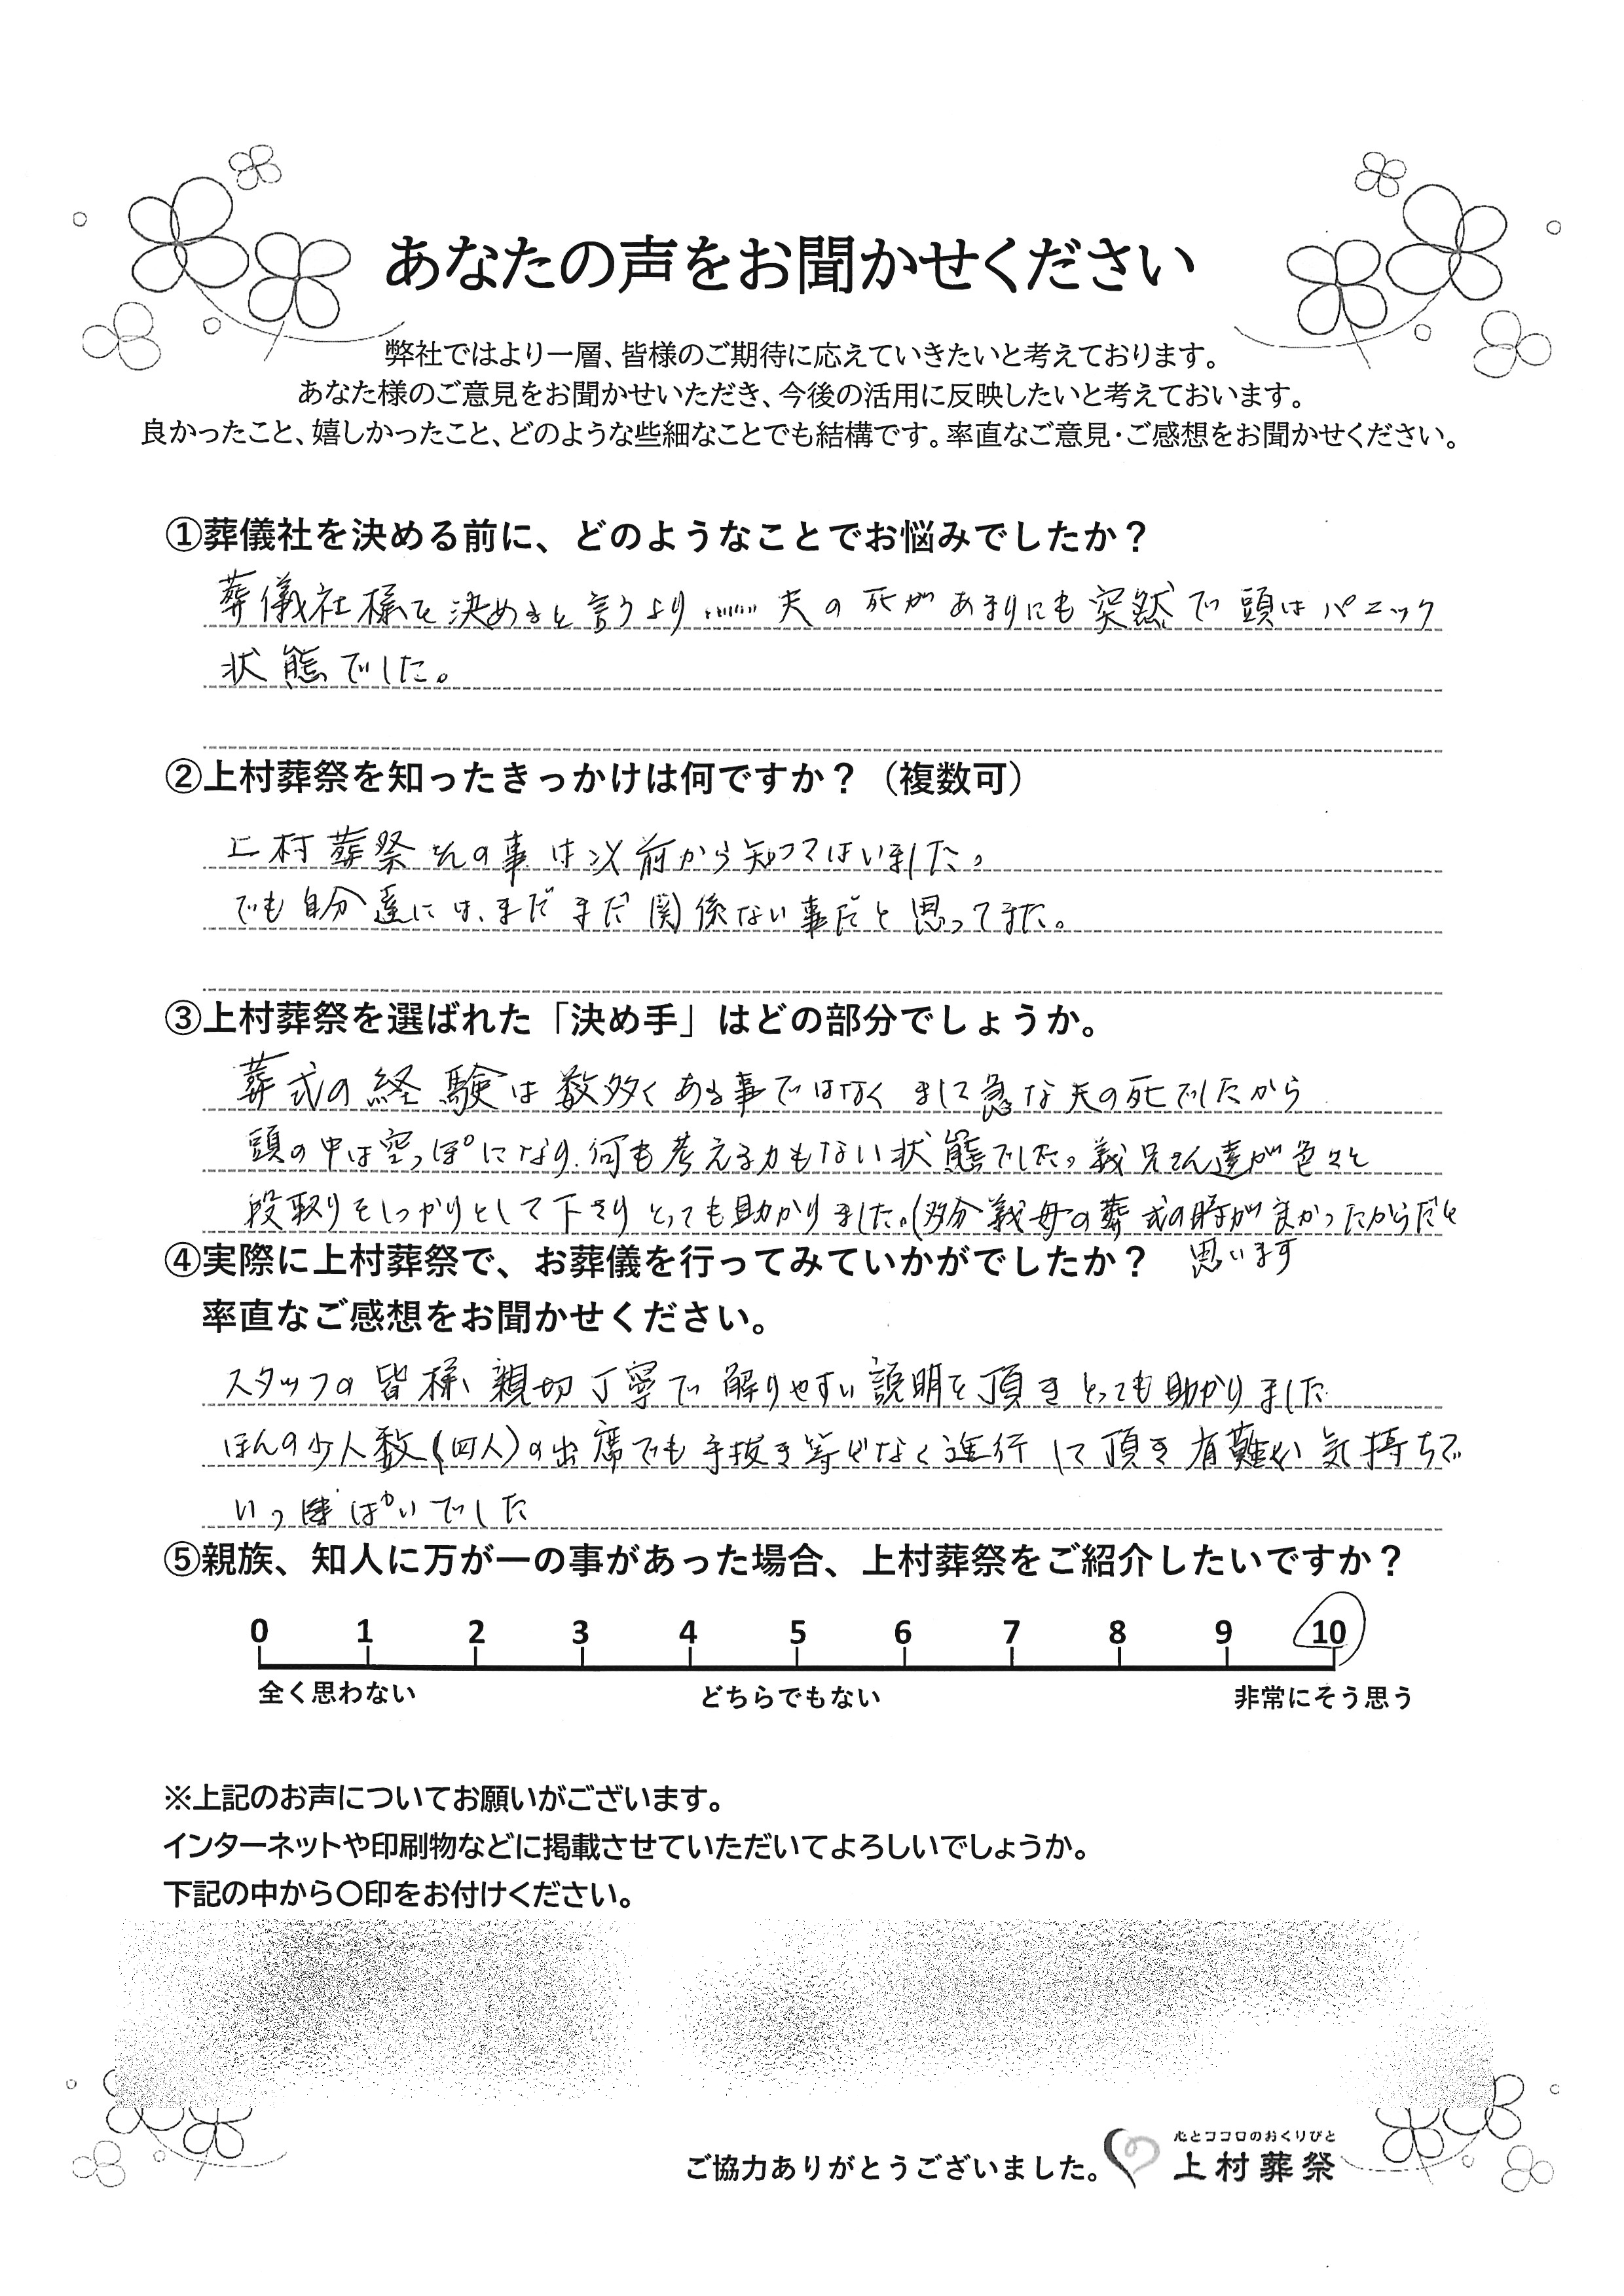 あなたの声をお聞かせください
弊社ではより一層、皆様のご期待に応えていきたいと考えております。
あなた様のご意見をお聞かせいただき、今後の活用に反映したいと考えておいます。
良かったこと、嬉しかったこと、どのような些細なことでも結構です。率直なご意見・ご感想をお聞かせください。
①葬儀社を決める前に、どのようなことでお悩みでしたか？
葬儀社様を決めると言うより……夫の死があまりにも突然で頭はパニック
状態でした。
②上村葬祭を知ったきっかけは何ですか？（複数可）
上村葬祭さんの事は以前から知ってはいました。
でも自分達には、まだまだ関係ない事だと思ってきた。
③上村葬祭を選ばれた「決め手」はどの部分でしょうか。
葬式の経験は数多くある事ではなく まして急な夫の死でしたから
頭の中は空っぽになり、何も考える力もない状態でした。義兄さん達が色々と
段取りをしっかりとして下さりとっても助かりました。(多分義母の葬式の時が良かったからだと
思います
④実際に上村葬祭で、お葬儀を行ってみていかがでしたか？
率直なご感想をお聞かせください。
スタッフの皆様、親切丁寧で解りやすい説明を頂きとっても助かりました
ほんの少人数(四人)の出席でも手抜き等もなく進行して頂き有難い気持ちで
いっぱいでした
⑤親族、知人に万が一の事があった場合、上村葬祭をご紹介したいですか？
0 1 2 3 4 5 6 7 8 9 10
全く思わない どちらでもない 非常にそう思う
※上記のお声についてお願いがございます。
インターネットや印刷物などに掲載させていただいてよろしいでしょうか。
下記の中から〇印をお付けください。
心とココロのおくりびと
ご協力ありがとうございました。 上村葬祭